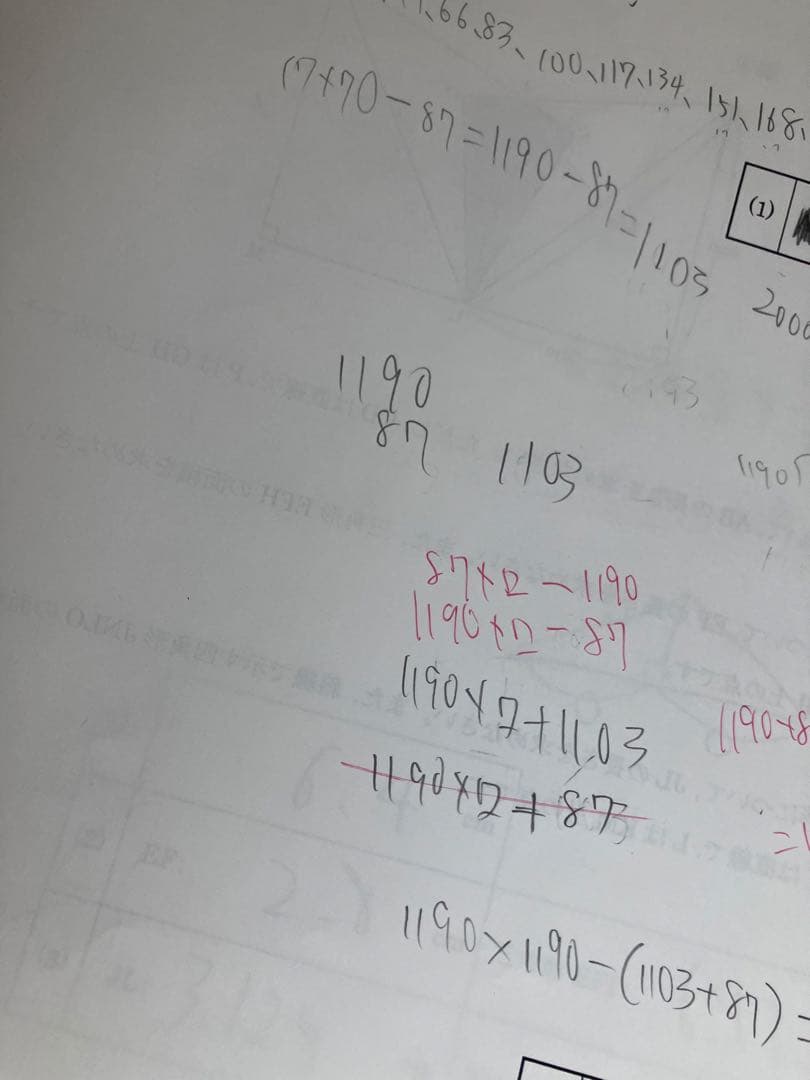 66、83、100、117、134、151、168、
17×70-87=1190-87=1103
(1)
2000
1190
87 1103
1190
87×□-1190
1190×□-87
1190×□+1103
1190×8
1190×□+87
=1
1190×1190-(1103+87)=